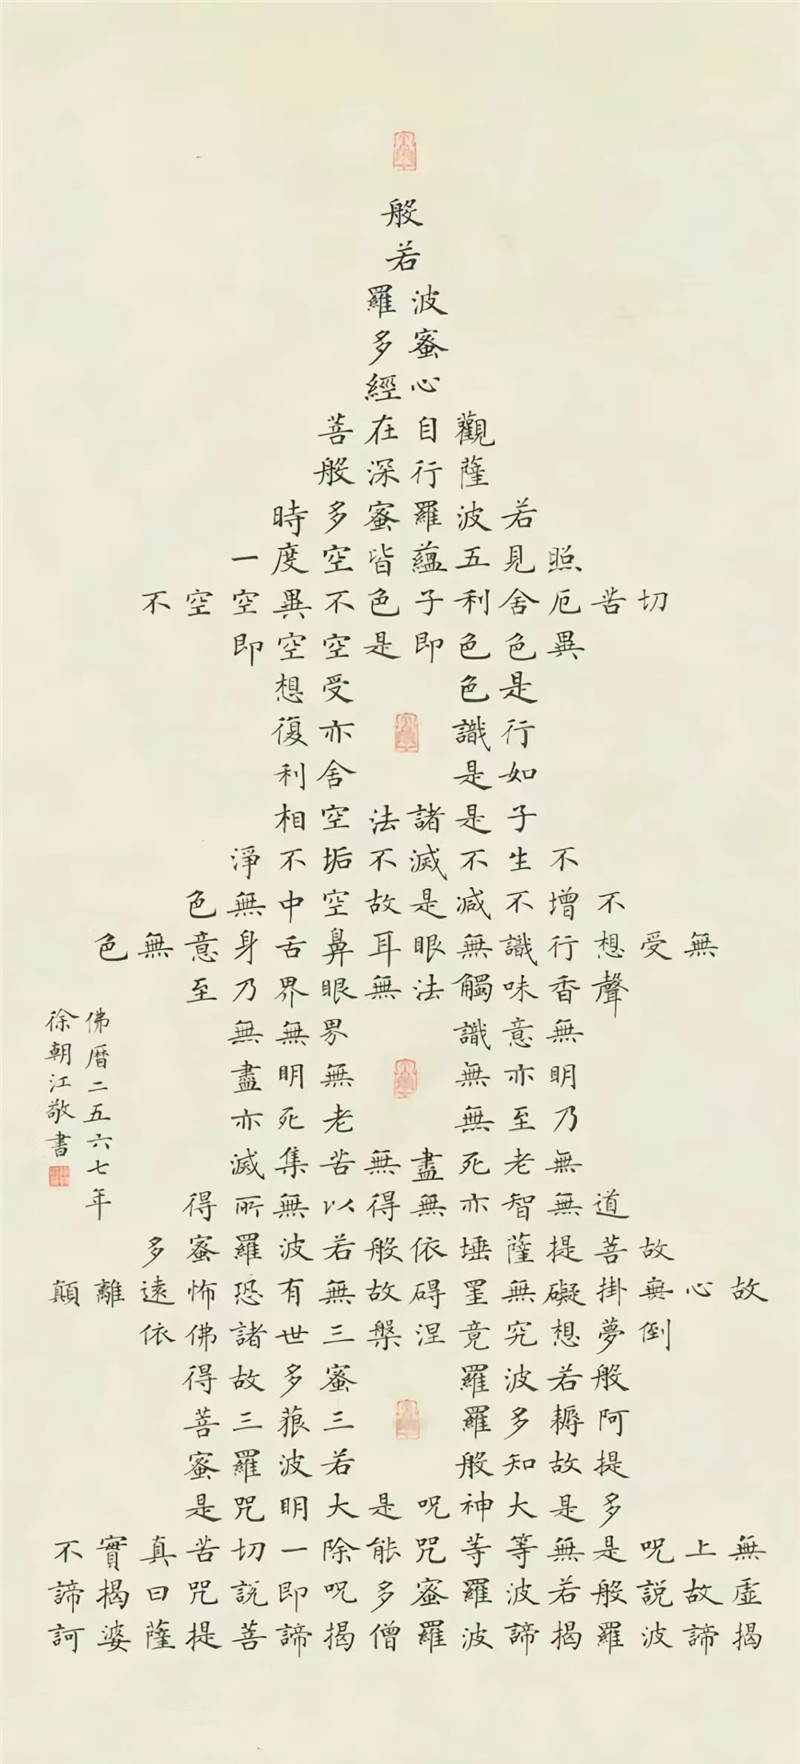 般
若
波羅
蜜多
心經
觀自在菩
薩行深般
若波羅蜜多時
照見五蘊皆空度一
切苦厄舍利子色不異空空不
異色色即是空空即
是色受想
行識亦復
如是舍利
子是諸法空相
不生不滅不垢不淨
不增不減是故空中無色
無受想行識無眼耳鼻舌身意無色
聲香味觸法無眼界乃至
無意識界無無
明亦無無明盡
乃至無老死亦
無老死盡無苦集滅
道無智亦無得以無所得
故菩提薩埵依般若波羅蜜多
故心無掛礙無罣碍故無有恐怖遠離顛
倒夢想究竟涅槃三世諸佛依
般若波羅蜜多故得
阿耨多羅三蒗三菩
提故知般若波羅蜜
多是大神呪是大明咒是
無上呪是無等等咒能除一切苦真實不
虛故説般若波羅蜜多呪即説咒曰揭諦
揭諦波羅揭諦波羅僧揭諦菩提薩婆訶
佛曆二五六七年
徐朝江敬書